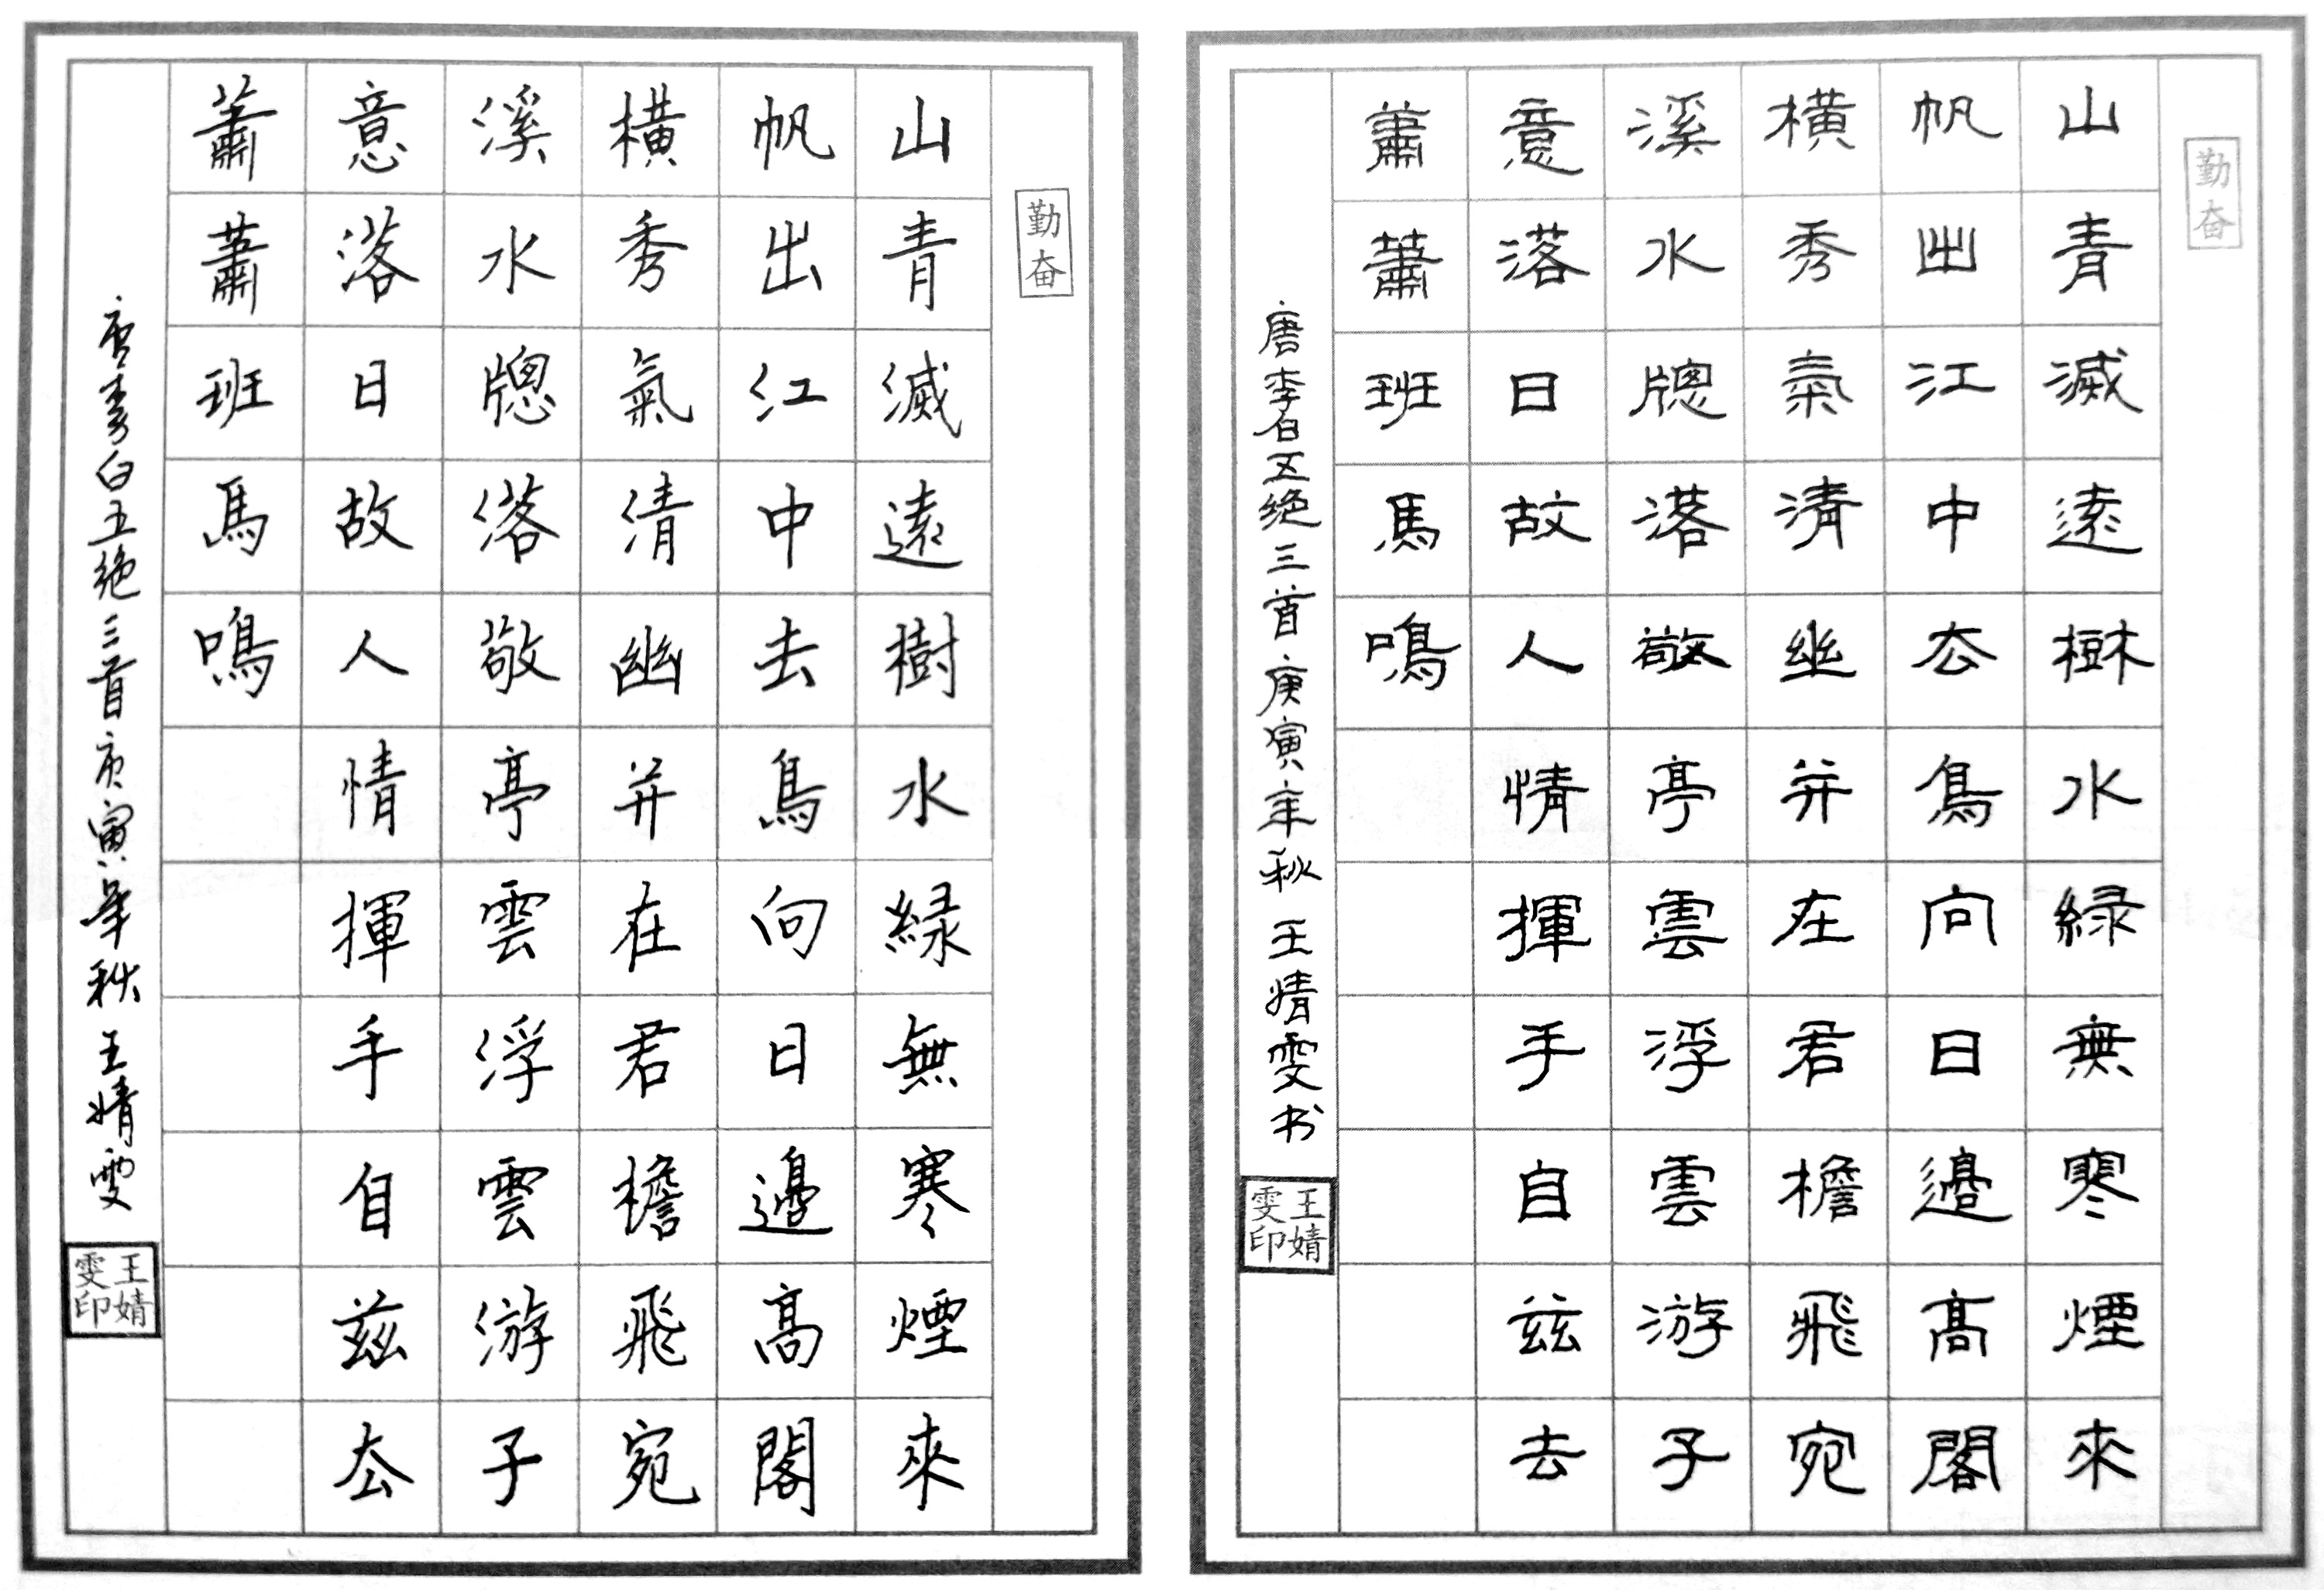 勤奋
山青滅遠樹水緑無寒煙來
帆出江中去鳥向日邊高閣
橫秀氣清幽并在君檐飛宛
溪水牕落敬亭雲浮雲游子
意落日故人情揮手自兹去
蕭蕭班馬鳴
唐李白五绝三首庚寅年秋王婧雯书
王婧雯印
勤奋
山青滅遠樹水緑無寒煙來
帆出江中去鳥向日邊高閣
橫秀氣清幽并在君檐飛宛
溪水牕落敬亭雲浮雲游子
意落日故人情揮手自兹去
蕭蕭班馬鳴
唐李白五绝三首庚寅年秋王婧雯
王婧雯印